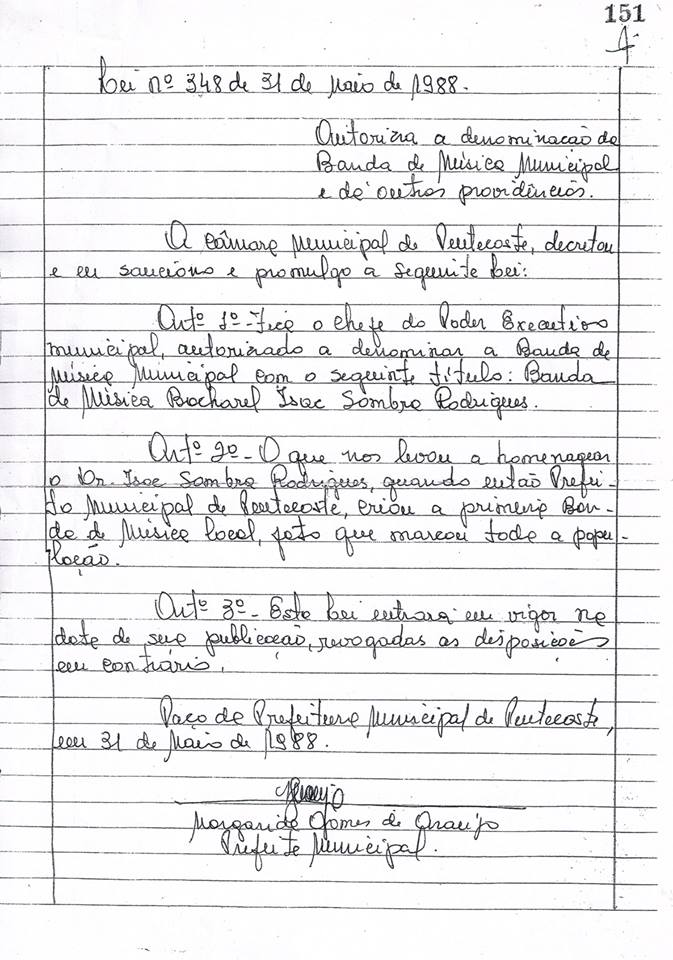 151
Lei nº 348 de 31 de Maio de 1988.
Autoriza a denominação da
Banda de Música Municipal
e dá outras providências.
A Câmara Municipal de Pentecoste, decretou
e eu sanciono e promulgo a seguinte Lei:
Artº 1º - Fica o chefe do Poder Executivo
municipal, autorizado a denominar a Banda de
Música Municipal com o seguinte título: Banda
de Música Bacharel Isac Sombra Rodrigues.
Artº 2º - O que nos levou a homenagear
o Dr. Isac Sombra Rodrigues, quando então Prefei-
to Municipal de Pentecoste, criou a primeira Ban-
da de Música local, fato que marcou toda a popu-
lação.
Artº 3º - Esta lei entrará em vigor na
data de sua publicação, revogadas as disposições
em contrário.
Paço da Prefeitura Municipal de Pentecoste,
em 31 de Maio de 1988.
Margarida Gomes de Araujo
Prefeita Municipal.